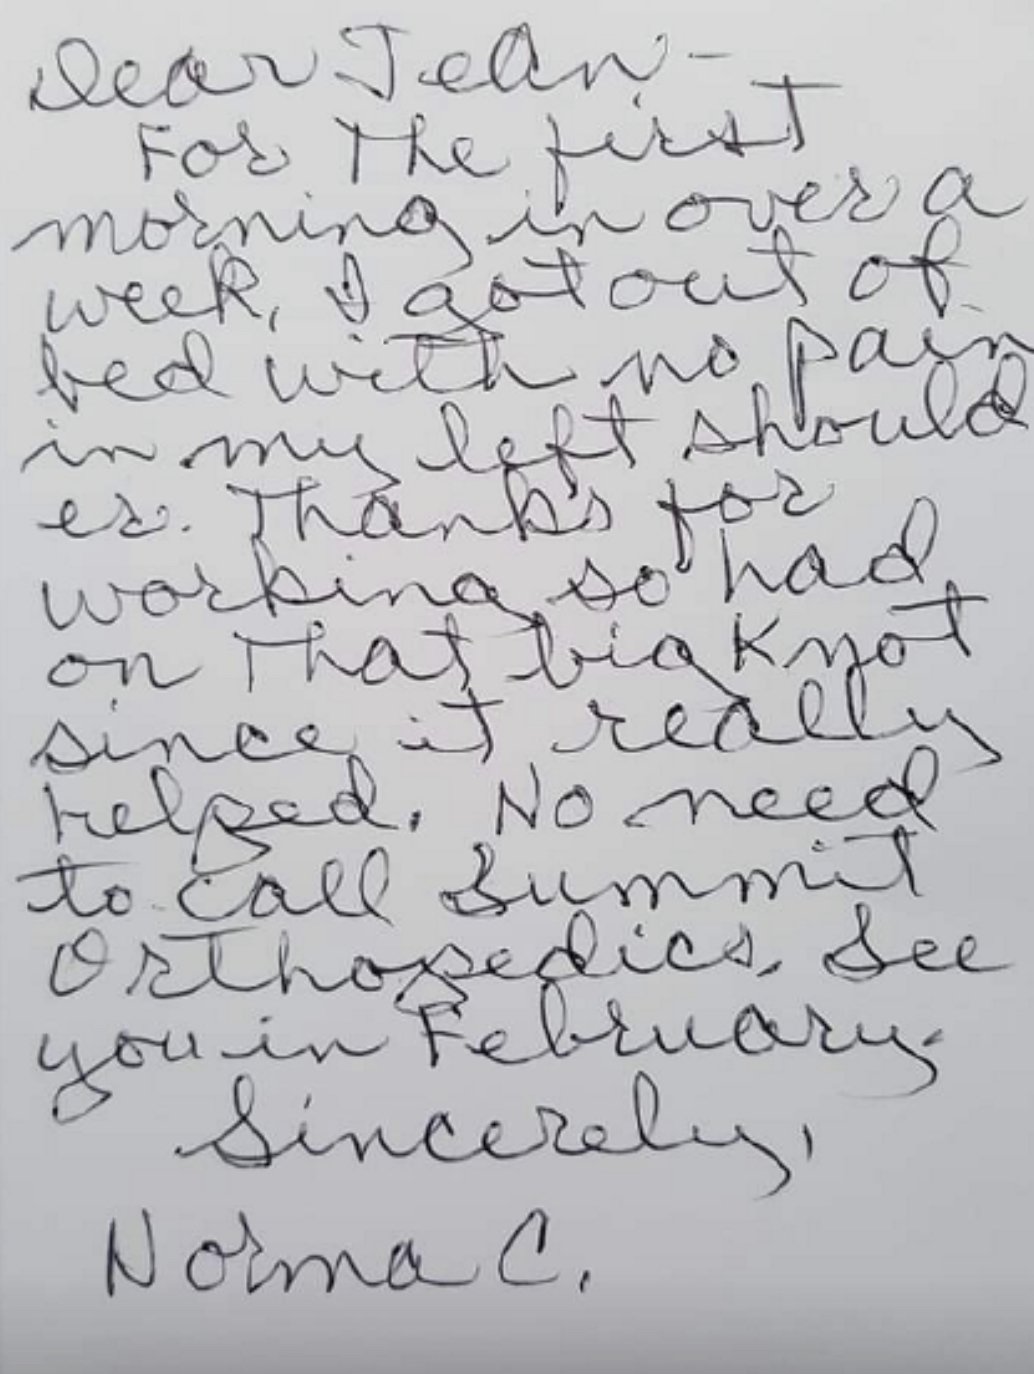 Dear Jean -
For the first
morning in over a
week, I got out of
bed with no pain
in my left should
er. Thanks for
working so had
on that big knot
since it really
helped. No need
to call Summit
Orthopedics. See
you in February.
Sincerely,
Norma C.